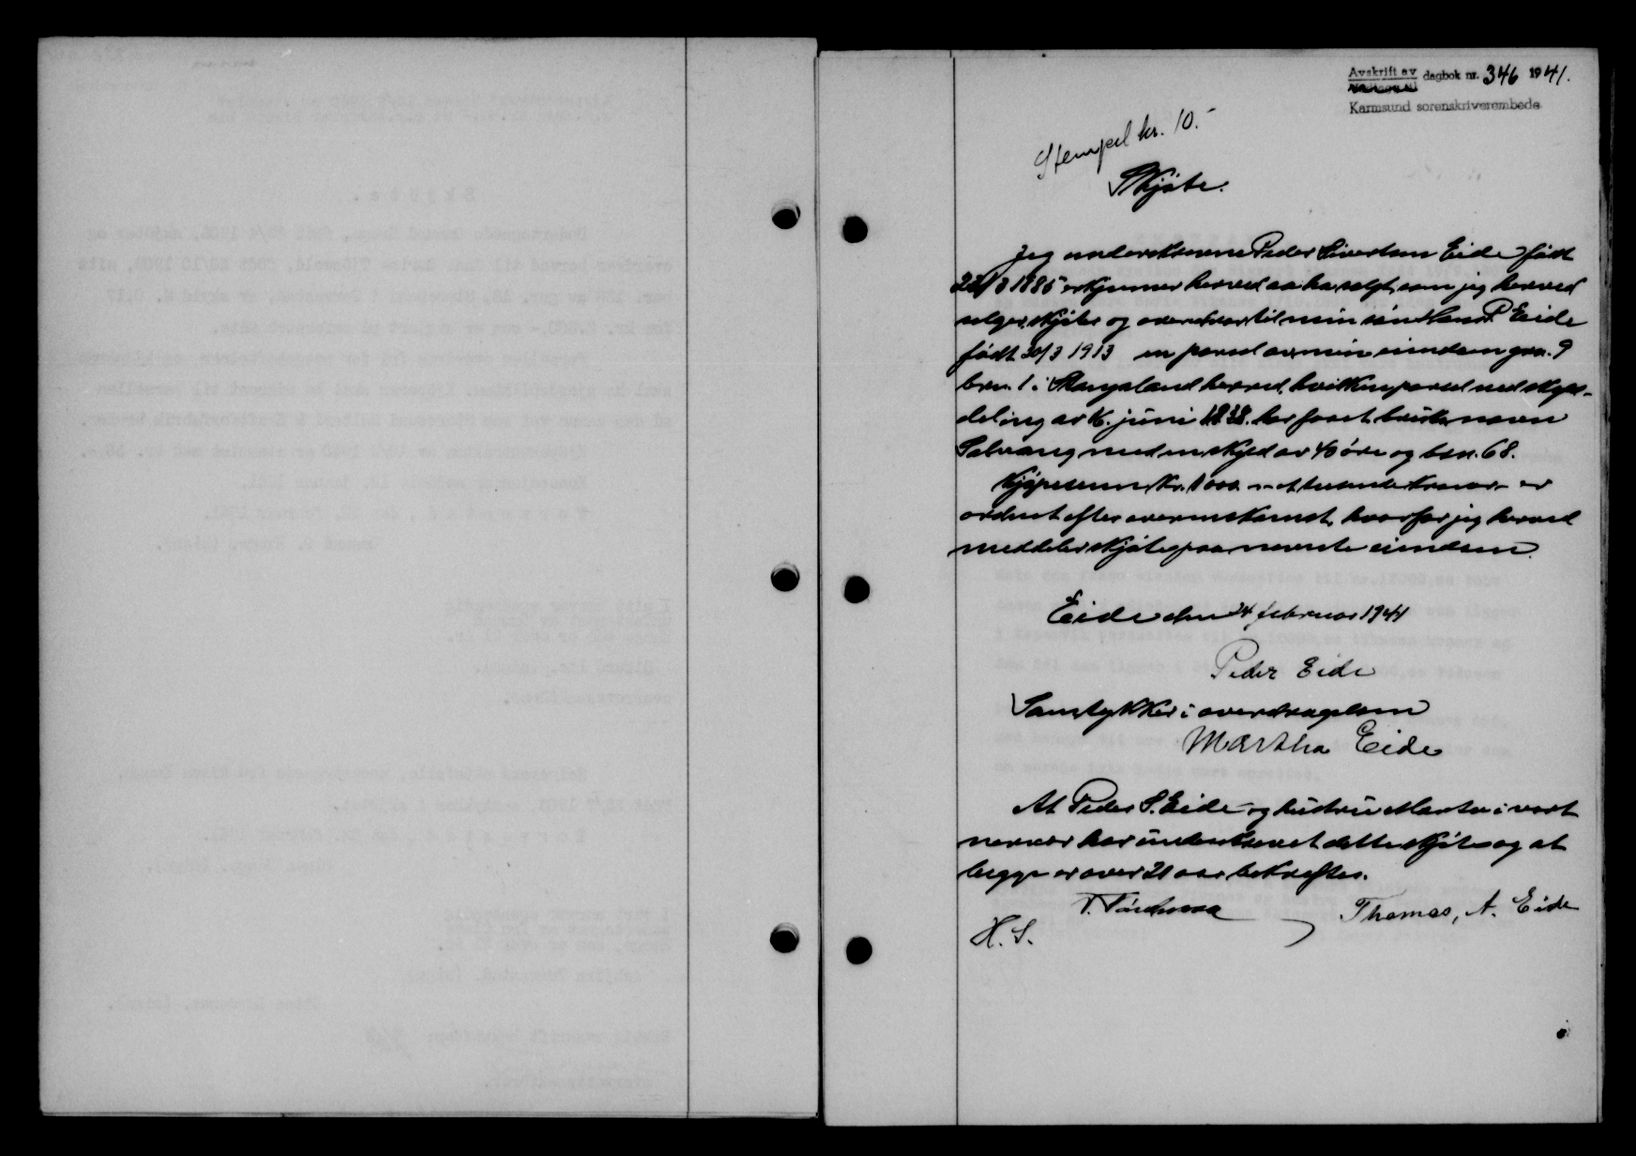 Avskrift av dagbok nr. 346 1941.
Karmsund sorenskriverembede
Stempel kr. 10.-
Skjøte.
Jeg underskrevne Peder Sivertsen Eide født
1885 erkjenner herved aa ha solgt, som jeg herved
selger, skjøter og overdrar til min sønn Hans P Eide
født 30/3 1913 en parsel av min eiendom gnr. 9
brn. 1 i herred, hvilken parsel ved skyld-
deling av juni har faaet bruksnavn
Solvang med en skyld av 40 øre og brn. 68.
Kjøpesummen Kr. 1000 - ettusende kroner - er
ordnet efter overenskomst, hvorfor jeg herved
meddeler skjøte paa nevnte eiendom.
Eide den 24 februar 1941
Peder Eide
Samtykker i overdragelsen
Martha Eide
At Peder S. Eide og hustru Marta i vort
nærvær har underskrevet dette skjøte og at
begge er over 21 aar bekreftes.
Thomas, A. Eide
H. S.